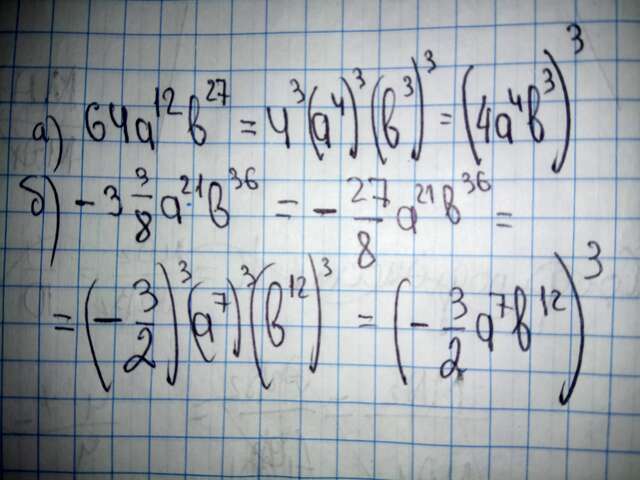 а) 64a¹²b²⁷ = 4³(a⁴)³(b³)³ = (4a⁴b³)³
б) - 3 3/8 a²¹b³⁶ = - 27/8 a²¹b³⁶ =
= (- 3/2)³(a⁷)³(b¹²)³ = (- 3/2 a⁷b¹²)³